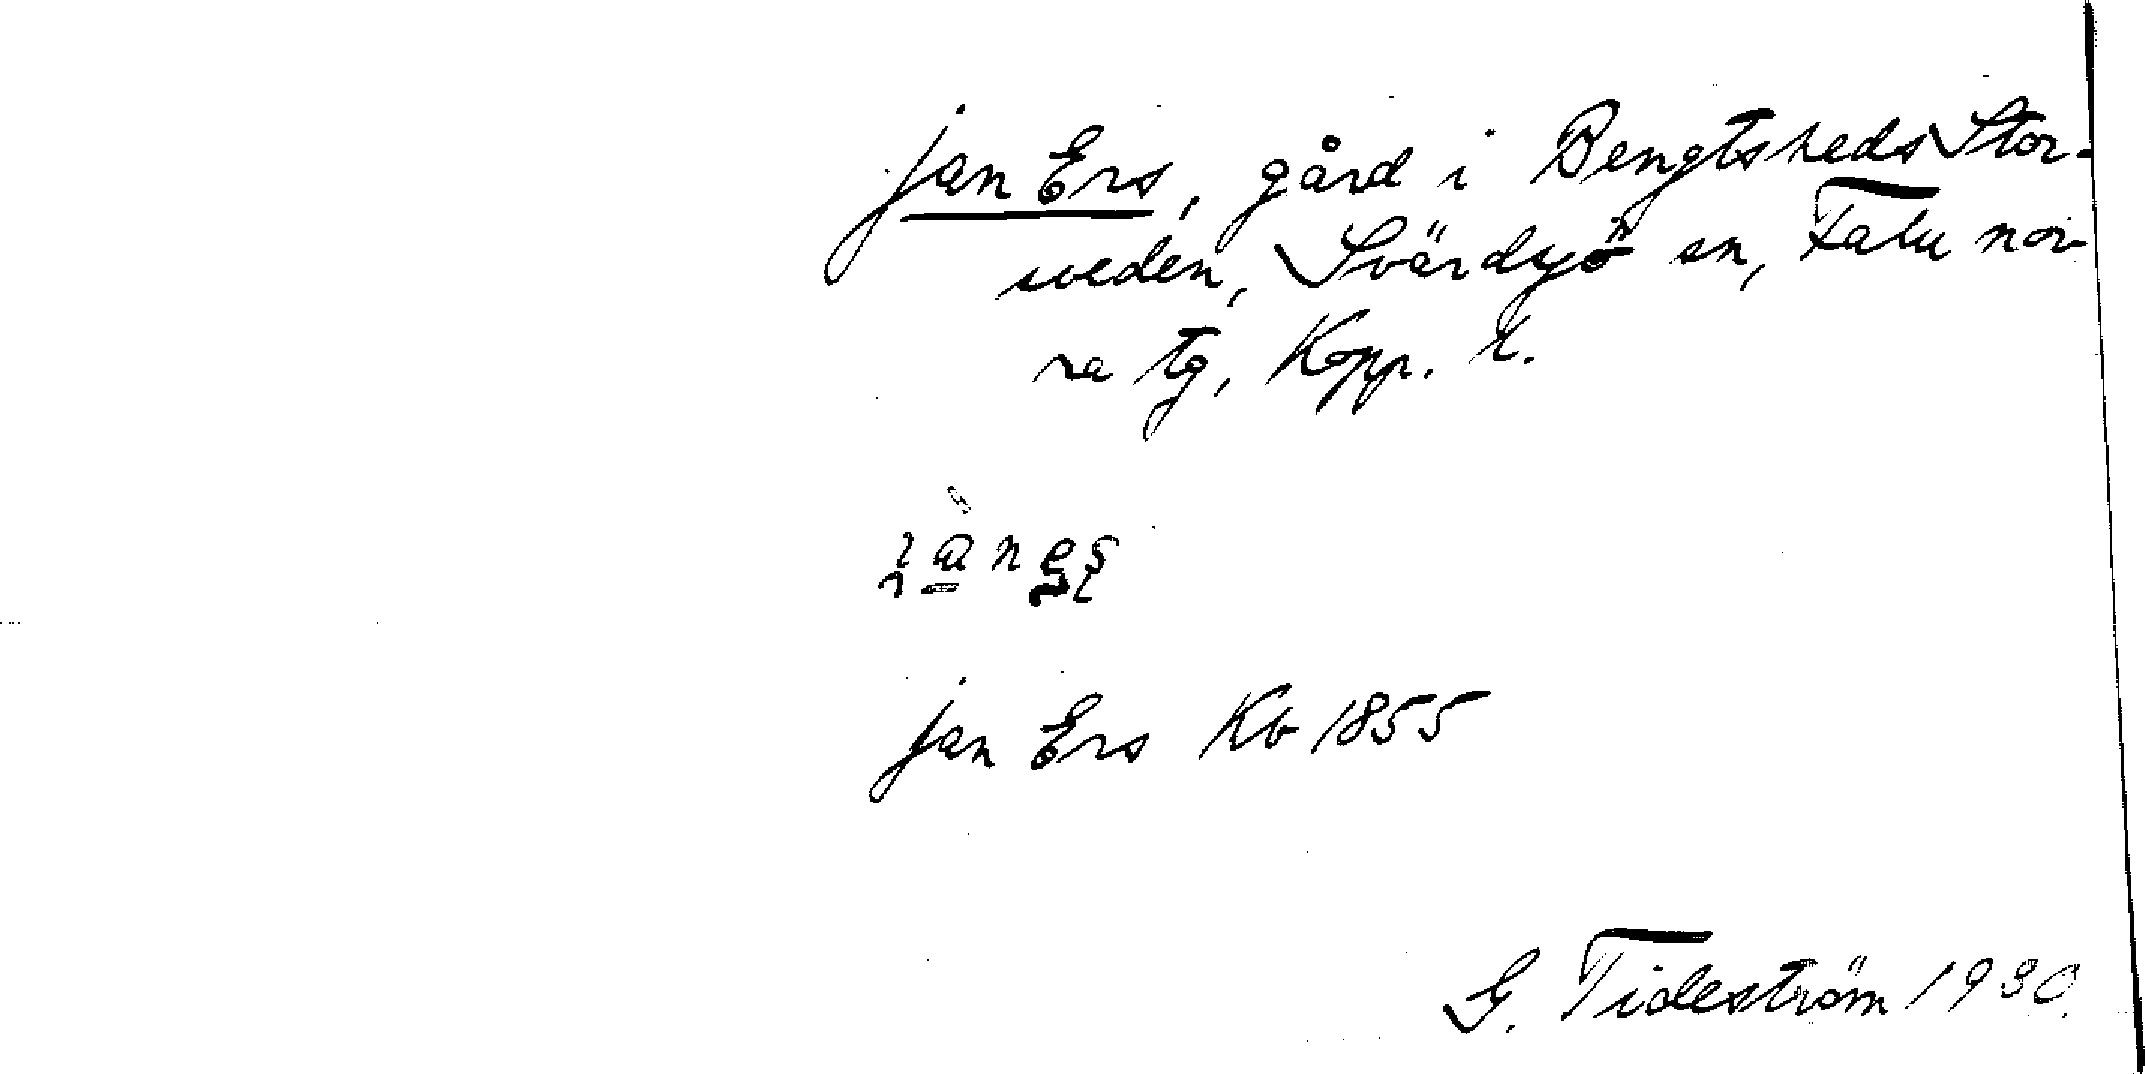 Jan Ers, gård i Bengtsheds Stor-
sveden, Svärdsjö sn, Falu nor-
ra tg, Kopp. l.
Jan Ers Kb 1855
G. Tideström 1930.